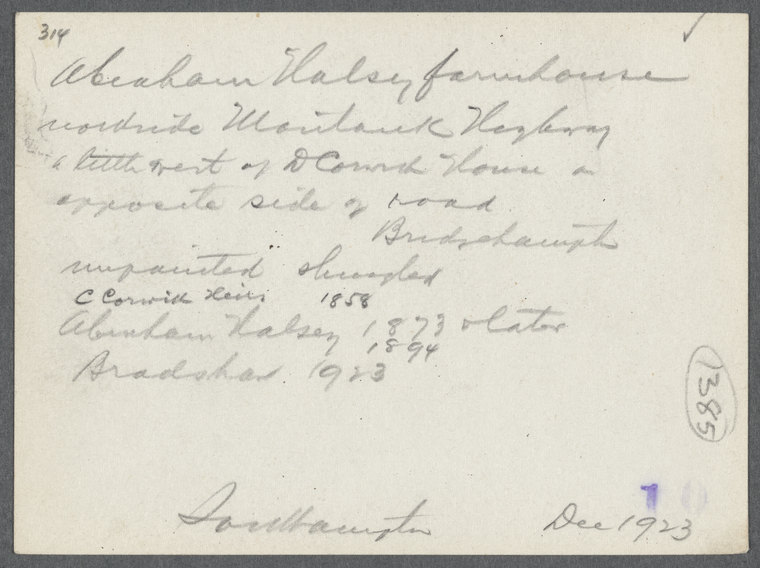 314
Abraham Halsey farmhouse
northside Montauk Highway
a little west of D Corwith House on
opposite side of road
Bridgehampton
unpainted shingled
C Corwith Heirs 1858
Abraham Halsey 1873 & later
1894
Bradshaw 1923
1385
10
Southampton Dec 1923